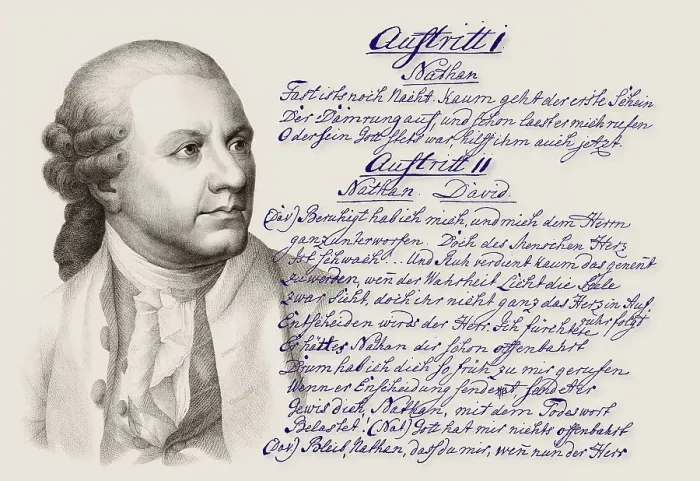 Auftritt I.
Nathan
Fast ists noch Nacht. Kaum geht der erste Schein
Der Dämrung auf, und schon laast er mich rufen
O der sein Gott stets war, hilf ihm auch jetzt.
Auftritt II
Nathan. David.
(Dav) Beruhigt hab ich mich, und mich dem Herrn
ganz unterworfen. Doch des Menschen Herz
Ist schwach! ... Und Ruh verdient kaum das genent
zu werden, weñ der Wahrheit Licht die Seele
zwar sieht, doch ihr nicht ganz das Herz in Auf
ruhr folgt
Entscheiden wirds der Herr. Ich fürchte
Er hätt es Nathan dir schon offenbahrt
Drum hab ich dich so früh zu mir gerufen
Wenn er Entscheidung sendet, sendet er
Gewis dich, Nathan, mit dem Todeswort
Belastet! (Nat) Gott hat mir nichts offenbahrt
(Dav) Bleib, Nathan, dass du mir, weñ nun der Herr